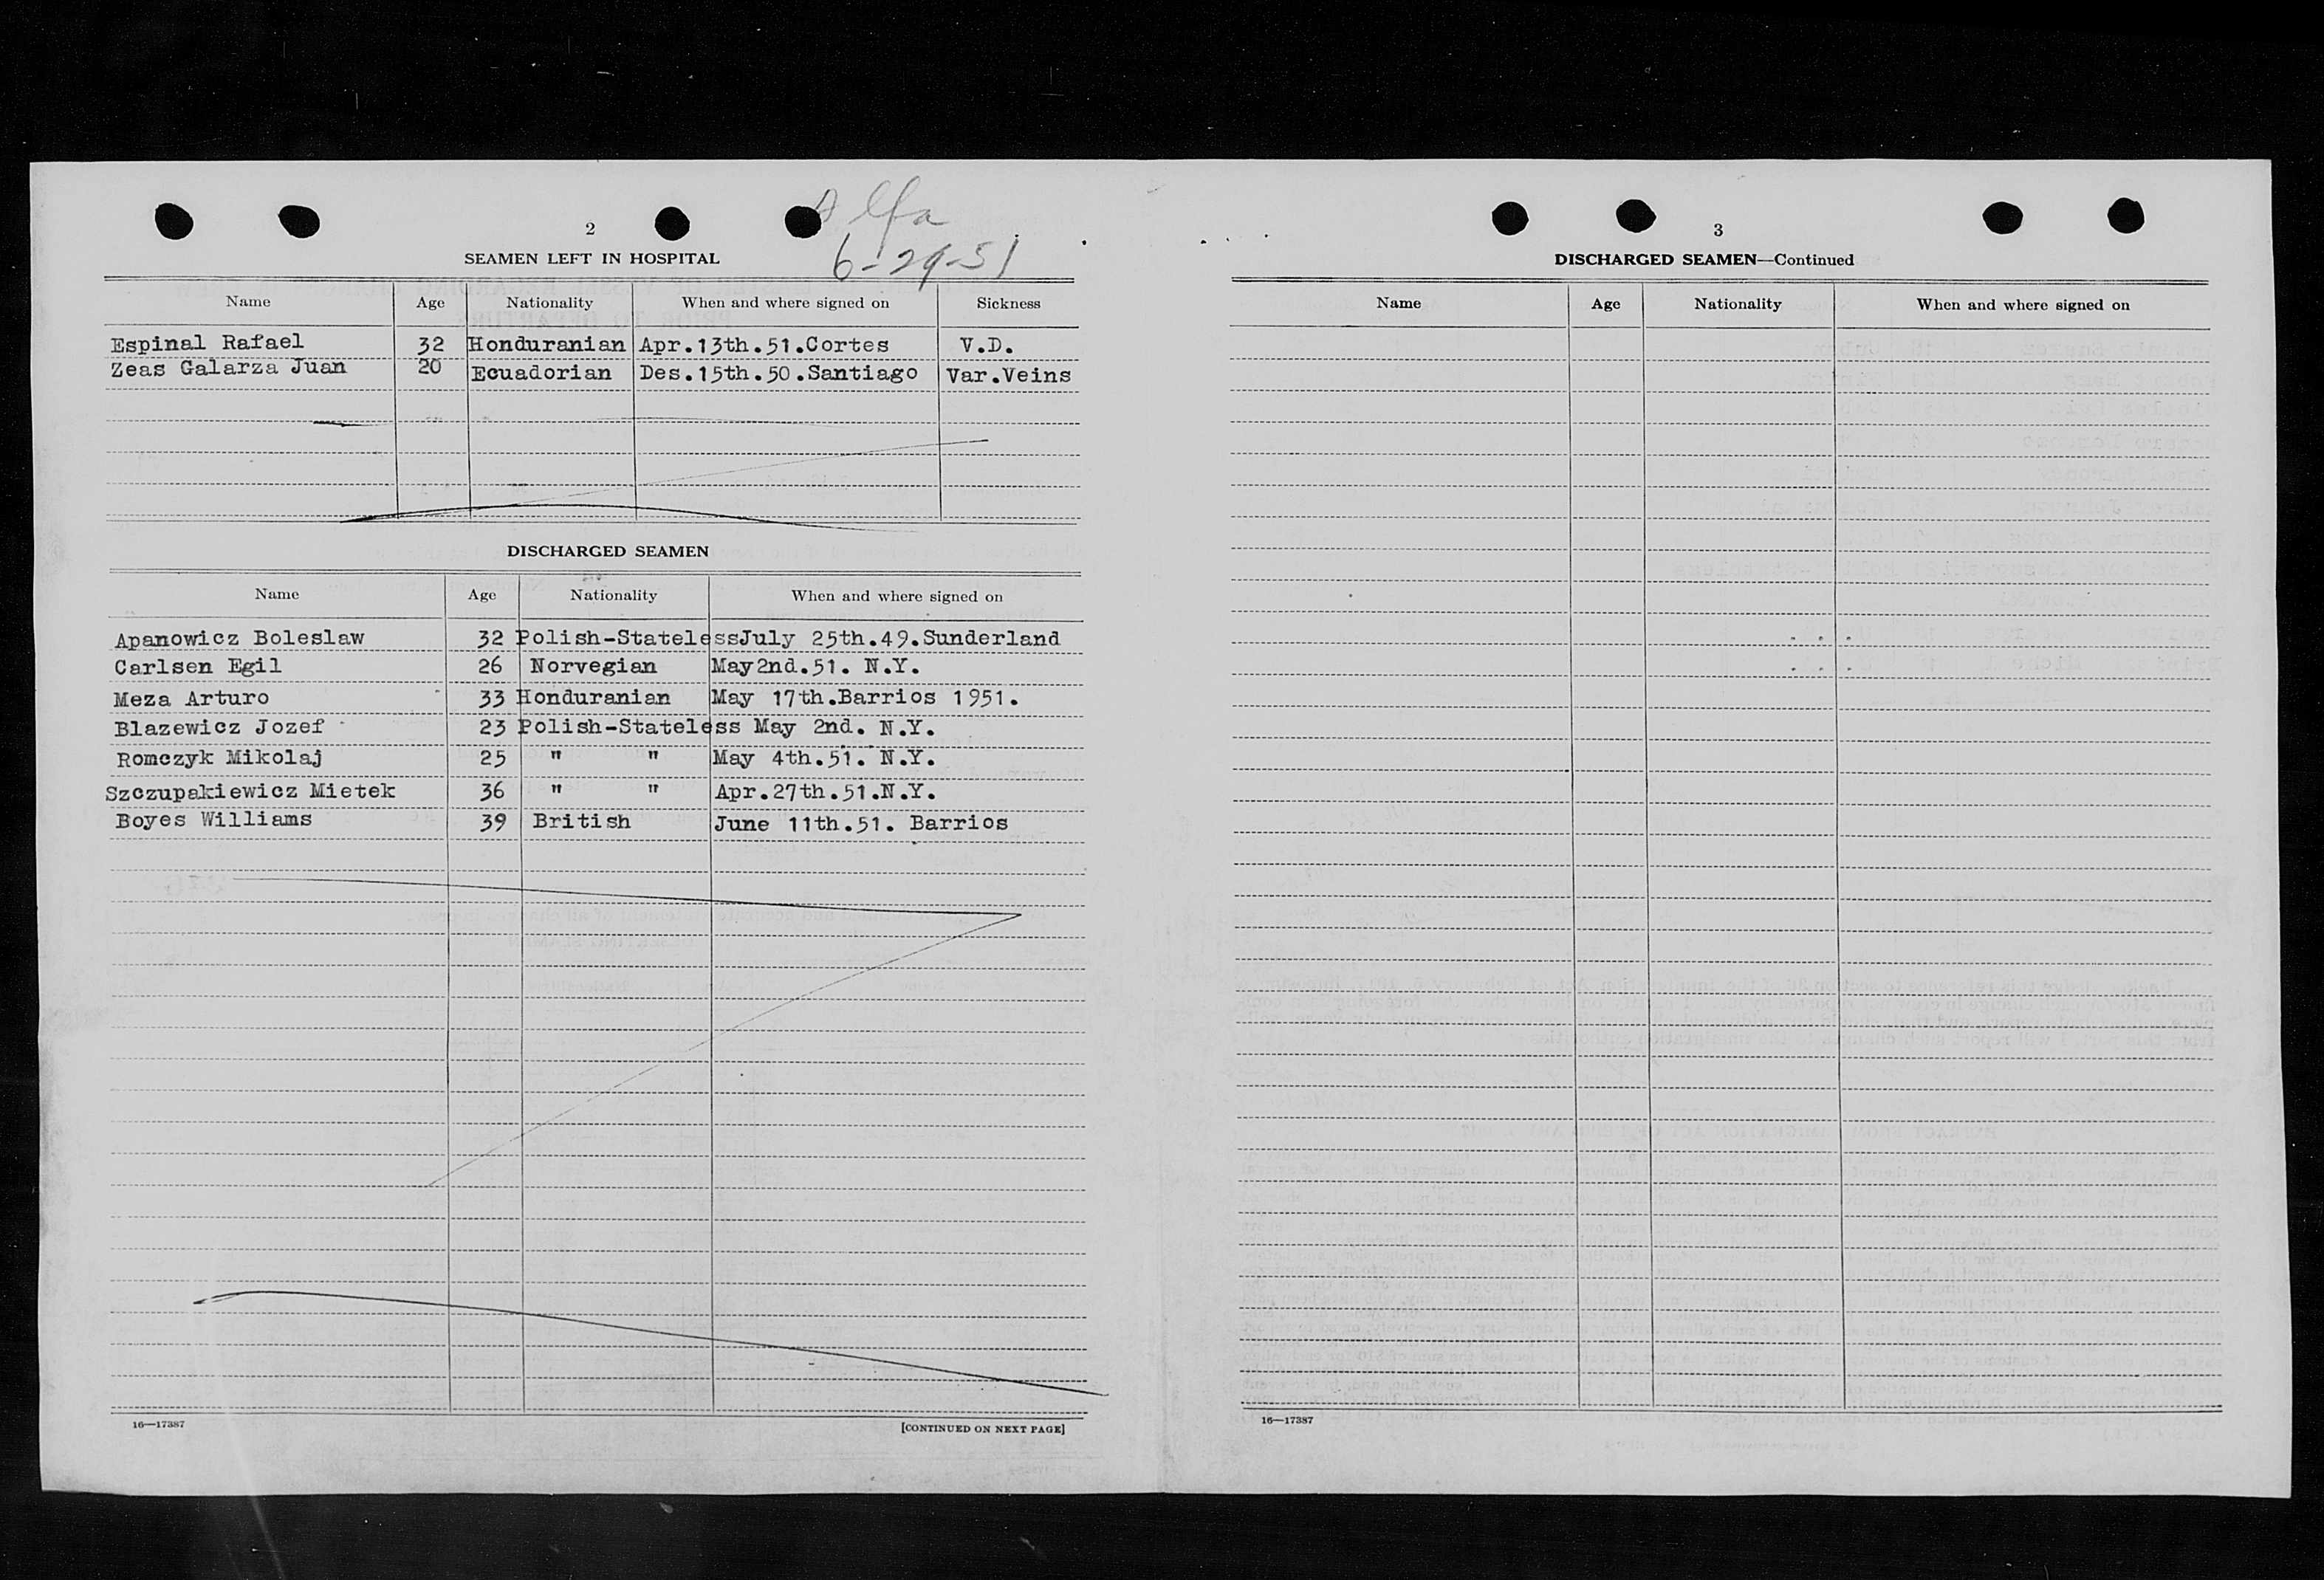 Alfa
6-29-51
2
SEAMEN LEFT IN HOSPITAL
Name Age Nationality When and where signed on Sickness
Espinal Rafael 32 Honduranian Apr.13th.51.Cortes V.D.
Zeas Galarza Juan 20 Ecuadorian Des.15th.50.Santiago Var.Veins
DISCHARGED SEAMEN
Name Age Nationality When and where signed on
Apanowicz Boleslaw 32 Polish-Stateless July 25th.49.Sunderland
Carlsen Egil 26 Norwegian May 2nd.51. N.Y.
Meza Arturo 33 Honduranian May 17th.Barrios 1951.
Blazewicz Jozef 23 Polish-Stateless May 2nd. N.Y.
Romczyk Mikolaj 25 " " May 4th.51. N.Y.
Szczupakiewicz Mietek 36 " " Apr.27th.51.N.Y.
Boyes Williams 39 British June 11th.51. Barrios
16—17387
[CONTINUED ON NEXT PAGE]
3
DISCHARGED SEAMEN—Continued
Name Age Nationality When and where signed on
16—17387